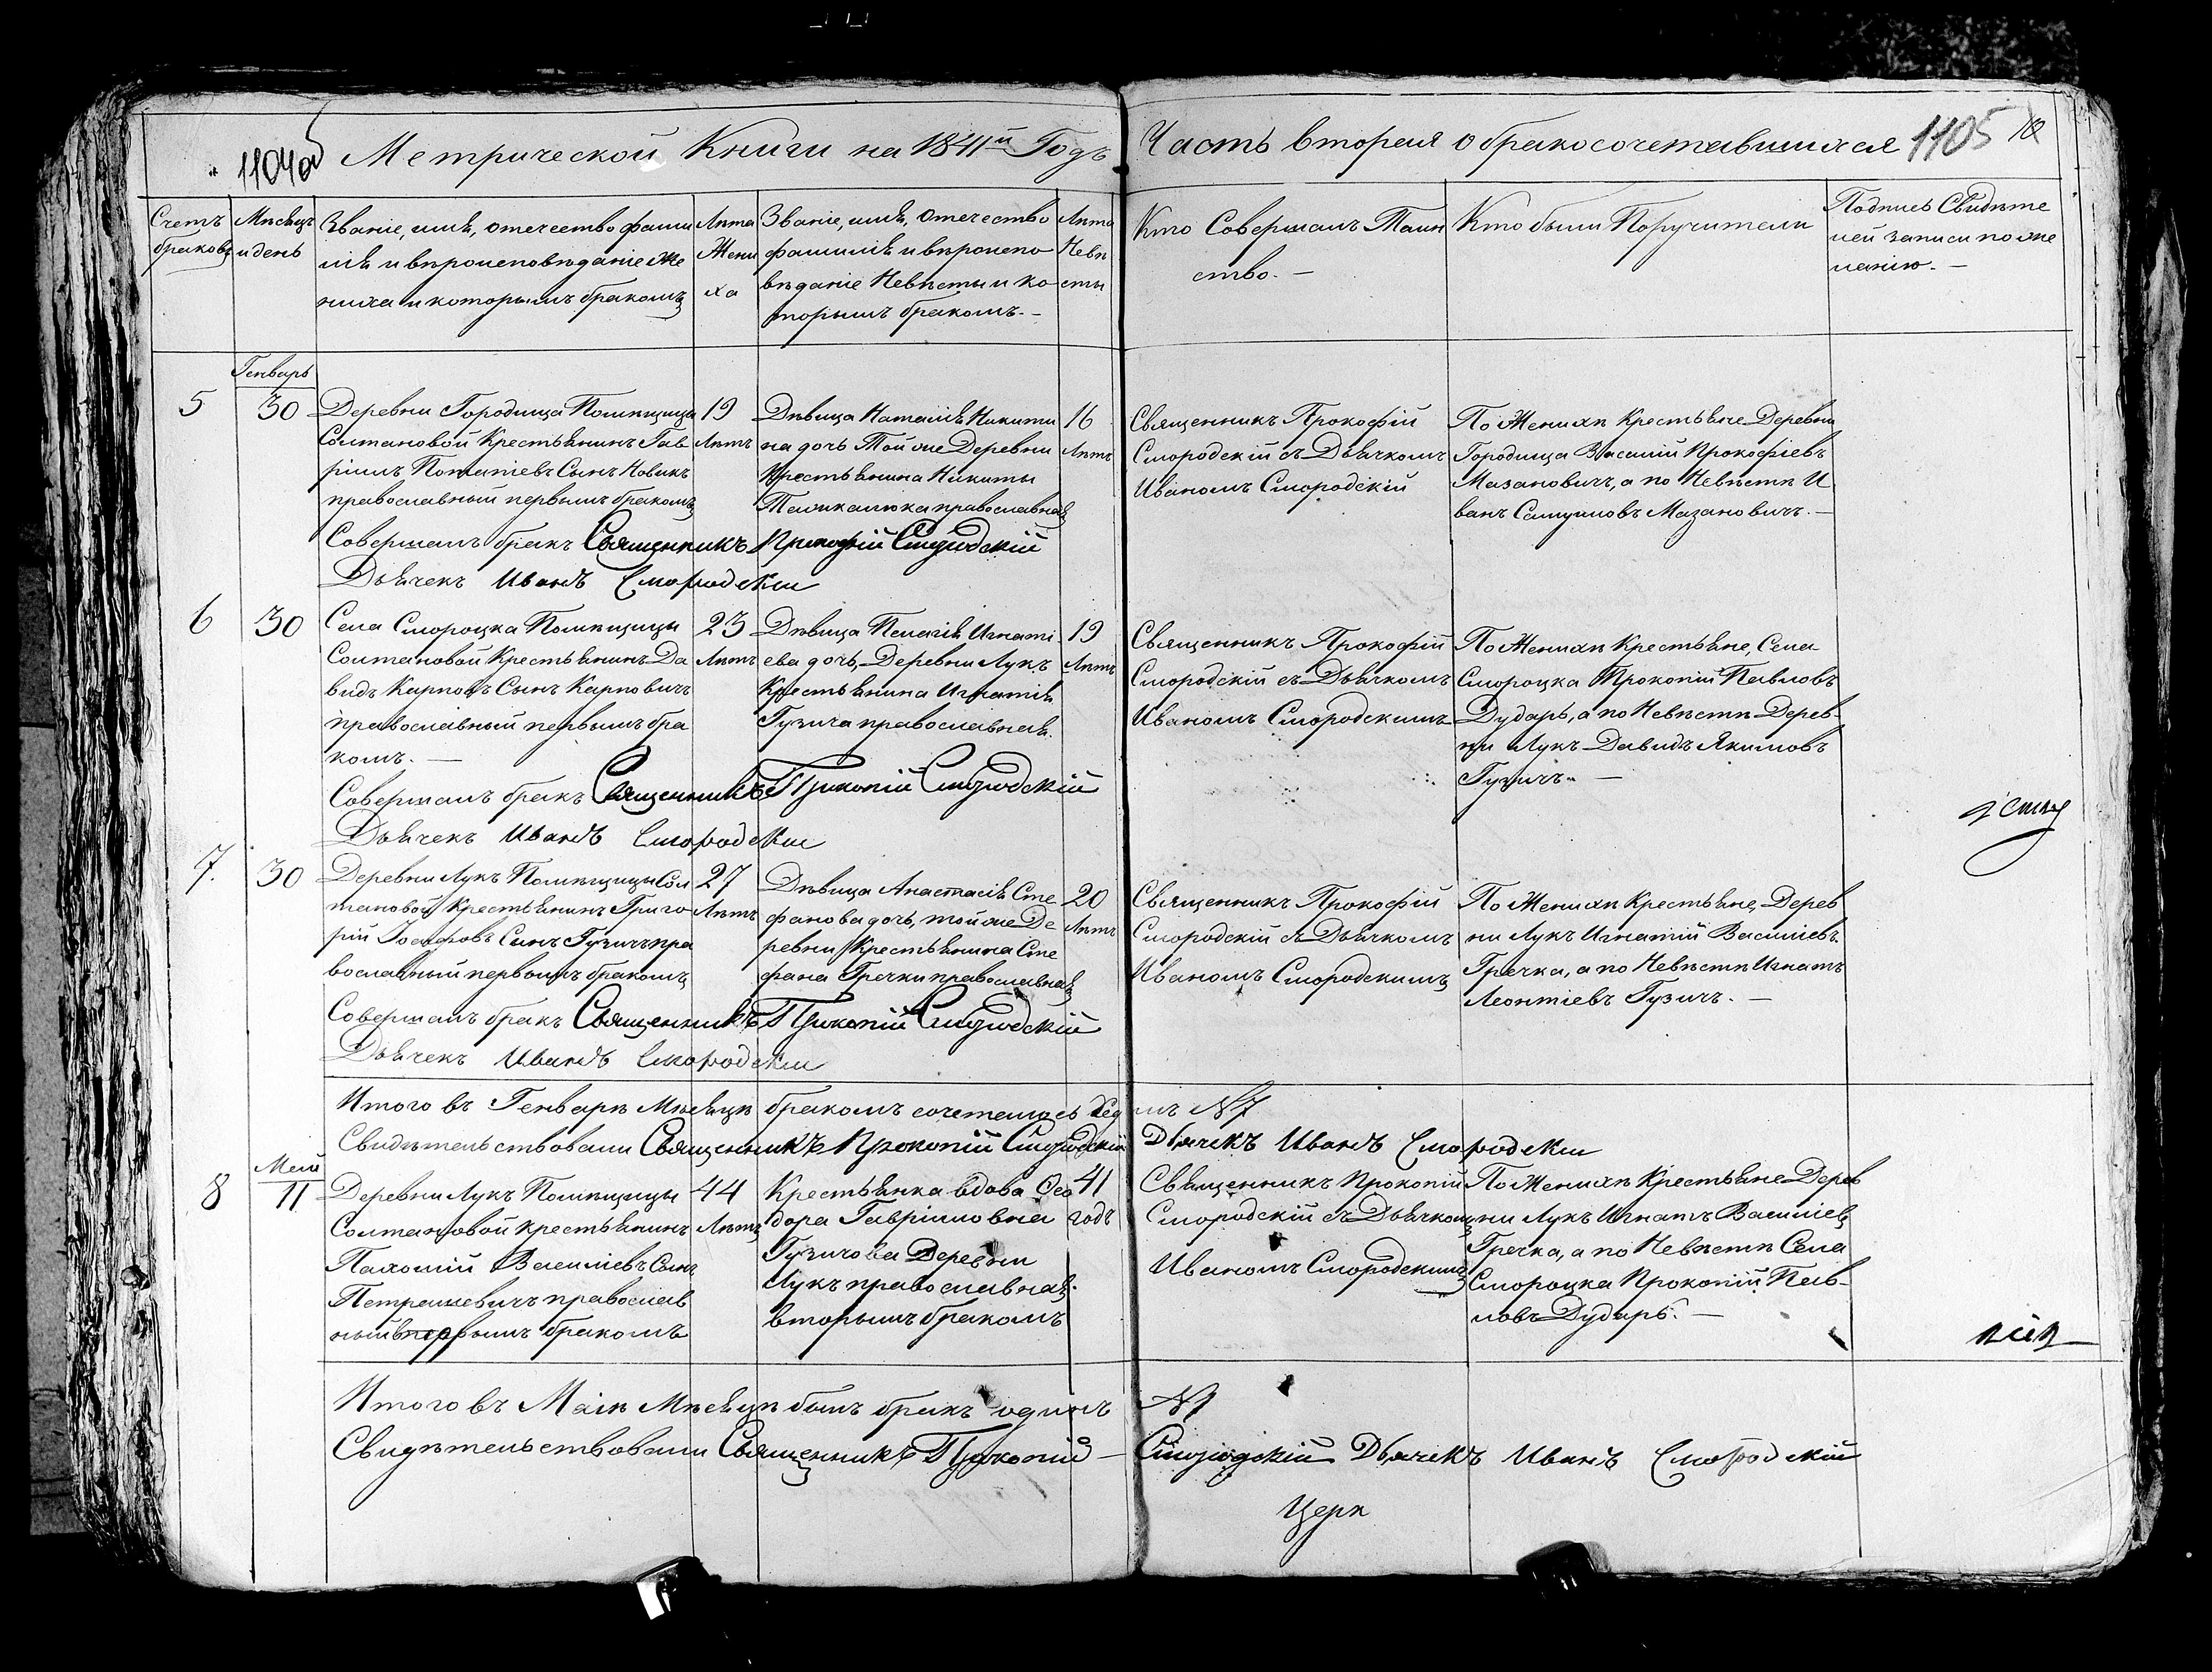 1104об Метрической Книги на 1841й Годъ Часть вторая о бракосочетавшихся 1105
Счетъ браковъ
Мѣсяцъ и день
Званіе, имя, отечество фами
лія и вѣроисповѣданіе Же
ниха и которымъ бракомъ
Лѣта
Жени
ха
Званіе, имя, отечество
фамилія и вѣроиспо
вѣданіе Невѣсты и ко
торымъ бракомъ. —
Лѣта
Невѣ
сты
Кто Совершалъ Таин
ство. —
Кто были Поручители
Подпись Свидѣте
лей записи по же
ланію. —
Генварь
5
30
Деревни Городища Помѣщицы
Солтановой Крестьянинъ Гав
ріилъ Сынъ Новикъ
православный первымъ бракомъ
19
Лѣтъ
Дѣвица Наталія Никити
на дочь Той же Деревни
Крестьянина Никиты
православная
16
Лѣтъ
Священникъ Прокофій
Смородскій съ Дьячкомъ
Иваномъ Смородскій
По Женихѣ Крестьяне Деревни
Городища Василій Прокофіевъ
Мазановичъ, а по Невѣстѣ И
ванъ Самуиловъ Мазановичъ. —
Совершалъ бракъ Священникъ Прокофій Смородскій
Дьячекъ Иванъ Смородскіи
6
30
Села Смороцка Помѣщицы
Солтановой Крестьянинъ Да
видъ Карповъ Сынъ Карповичъ
православный первымъ бра
комъ. —
23
Лѣтъ
Дѣвица Пелагія Игнаті
ева дочь, Деревни Лукъ
Крестьянина Игнатія
Гузича православная.
19
Лѣтъ
Священникъ Прокофій
Смородскій съ Дьячкомъ
Иваномъ Смородскимъ
По Женихѣ Крестьяне, Села
Смороцка Прокопій Павловъ
Дударь, а по Невѣстѣ Дерев-
ни Лукъ Давидъ Якимовъ
Гузичъ. —
Совершалъ бракъ Священникъ Прокопій Смородскій
Дьячекъ Иванъ Смородскіи
7.
30
Деревни Лукъ Помѣщицы Сол
тановой Крестьянинъ Григо
рій Іосифовъ Сынъ Гузичъ пра
вославный первымъ бракомъ
27
Лѣтъ
Дѣвица Анастасія Сте
фанова дочь, той же Де
ревни Крестьянина Сте
фана Гречки православная
20
Лѣтъ
Священникъ Прокофій
Смородскій съ Дьячкомъ
Иваномъ Смородскимъ
По Женихѣ Крестьяне, Дерев
ни Лукъ Игнатій Василіевъ
Гречка, а по Невѣстѣ Игнатъ
Леонтіевъ Гузичъ. —
Совершалъ бракъ Священникъ Прокопій Смородскій
Дьячекъ Иванъ Смородскіи
Итого въ Генварѣ Мѣсяцѣ бракомъ сочеталось №7
Свидѣтельствовали Священникъ Прокопій Смородскій Дьячекъ Иванъ Смородскіи
Маій
8
11
Деревни Лукъ Помѣщицы
Солтановой крестьянинъ
Пахомій Василіевъ Сынъ
Петрашевичъ православ
ный первымъ бракомъ
44
Лѣтъ
Крестьянка вдова Ѳео
дора Гавріиловна
Гузичова Деревни
Лукъ православная.
вторымъ бракомъ
41
годъ
Священникъ Прокопій
Смородскій съ Дьячкомъ
Иваномъ Смородскимъ
По Женихѣ Крестьяне Дерев
ни Лукъ Игнатъ Василіевъ
Гречка, а по Невѣстѣ Села
Смороцка Прокопій Пав-
ловъ Дударь. —
Итого въ Маіѣ Мѣсяцѣ былъ бракъ одинъ №1
Свидѣтельствовали Священникъ Прокопій — Смородскій Дьячекъ Иванъ Смородскій
Церк